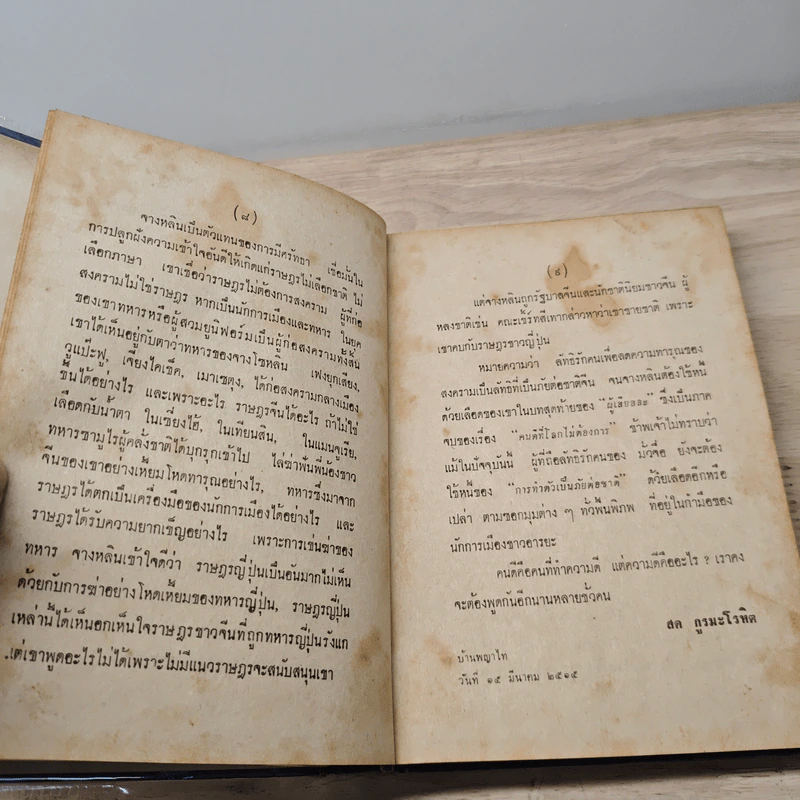 (๘)
จางหลินเป็นตัวแทนของการมีศรัทธา เชื่อมั่นใน
การปลูกฝังความเข้าใจอันดีให้เกิดแก่ราษฎรไม่เลือกชาติ ไม่
เลือกภาษา เขาเชื่อว่าราษฎรไม่ต้องการสงคราม ผู้ที่ก่อ
สงครามไม่ใช่ราษฎร หากเป็นนักการเมืองและทหาร ในยุค
ของเขาทหารหรือผู้สวมยูนิฟอร์มเป็นผู้ก่อสงครามทั้งสิ้น
เขาได้เห็นอยู่กับตาว่าทหารของจางโซหลิน เฟงยุกเสียง,
วูแป๊ะฟู, เจียงไคเช็ค, เมาเซตุง, ได้ก่อสงครามกลางเมือง
ขึ้นได้อย่างไร และเพราะอะไร ราษฎรจีนได้อะไร ถ้าไม่ใช่
เลือดกับน้ำตา ในเซี่ยงไฮ้, ในเทียนสิน, ในแมนจูเรีย,
ทหารซามูไรผู้คลั่งชาติได้บุกรุกเข้าไป ไล่ฆ่าฟันพี่น้องชาว
จีนของเขาอย่างเหี้ยมโหดทารุณอย่างไร, ทหารซึ่งมาจาก
ราษฎรได้ตกเป็นเครื่องมือของนักการเมืองได้อย่างไร และ
ราษฎรได้รับความยากเข็ญอย่างไร เพราะการเข่นฆ่าของ
ทหาร จางหลินเข้าใจดีว่า ราษฎรญี่ปุ่นเป็นอันมากไม่เห็น
ด้วยกับการฆ่าอย่างโหดเหี้ยมของทหารญี่ปุ่น, ราษฎรญี่ปุ่น
เหล่านี้ได้เห็นอกเห็นใจราษฎรชาวจีนที่ถูกทหารญี่ปุ่นรังแก
แต่เขาพูดอะไรไม่ได้เพราะไม่มีแนวราษฎรจะสนับสนุนเขา
(๙)
แต่จางหลินถูกรัฐบาลจีนและนักชาตินิยมชาวจีน ผู้
หลงชาติเช่น คณะเช็ร์ทสีเทากล่าวหาว่าเขาขายชาติ เพราะ
เขาคบกับราษฎรชาวญี่ปุ่น
หมายความว่า ลัทธิรักคนเพื่อลดความทารุณของ
สงครามเป็นลัทธิที่เป็นภัยต่อชาติจีน จนจางหลินต้องใช้หนี้
ด้วยเลือดของเขาในบทสุดท้ายของ "ผู้เสียสละ" ซึ่งเป็นภาค
จบของเรื่อง "คนดีที่โลกไม่ต้องการ" ข้าพเจ้าไม่ทราบว่า
แม้ในปัจจุบันนี้ ผู้ที่ถือลัทธิรักคนของ ม้วจื่อ ยังจะต้อง
ใช้หนี้ของ "การทำตัวเป็นภัยต่อชาติ" ด้วยเลือดอีกหรือ
เปล่า ตามซอกมุมต่าง ๆ ทั่วพื้นพิภพ ที่อยู่ในกำมือของ
นักการเมืองชาวอารยะ
คนดีคือคนที่ทำความดี แต่ความดีคืออะไร ? เราคง
จะต้องพูดกันอีกนานหลายชั่วคน
สด กูรมะโรหิต
บ้านพญาไท
วันที่ ๑๕ มีนาคม ๒๕๑๕